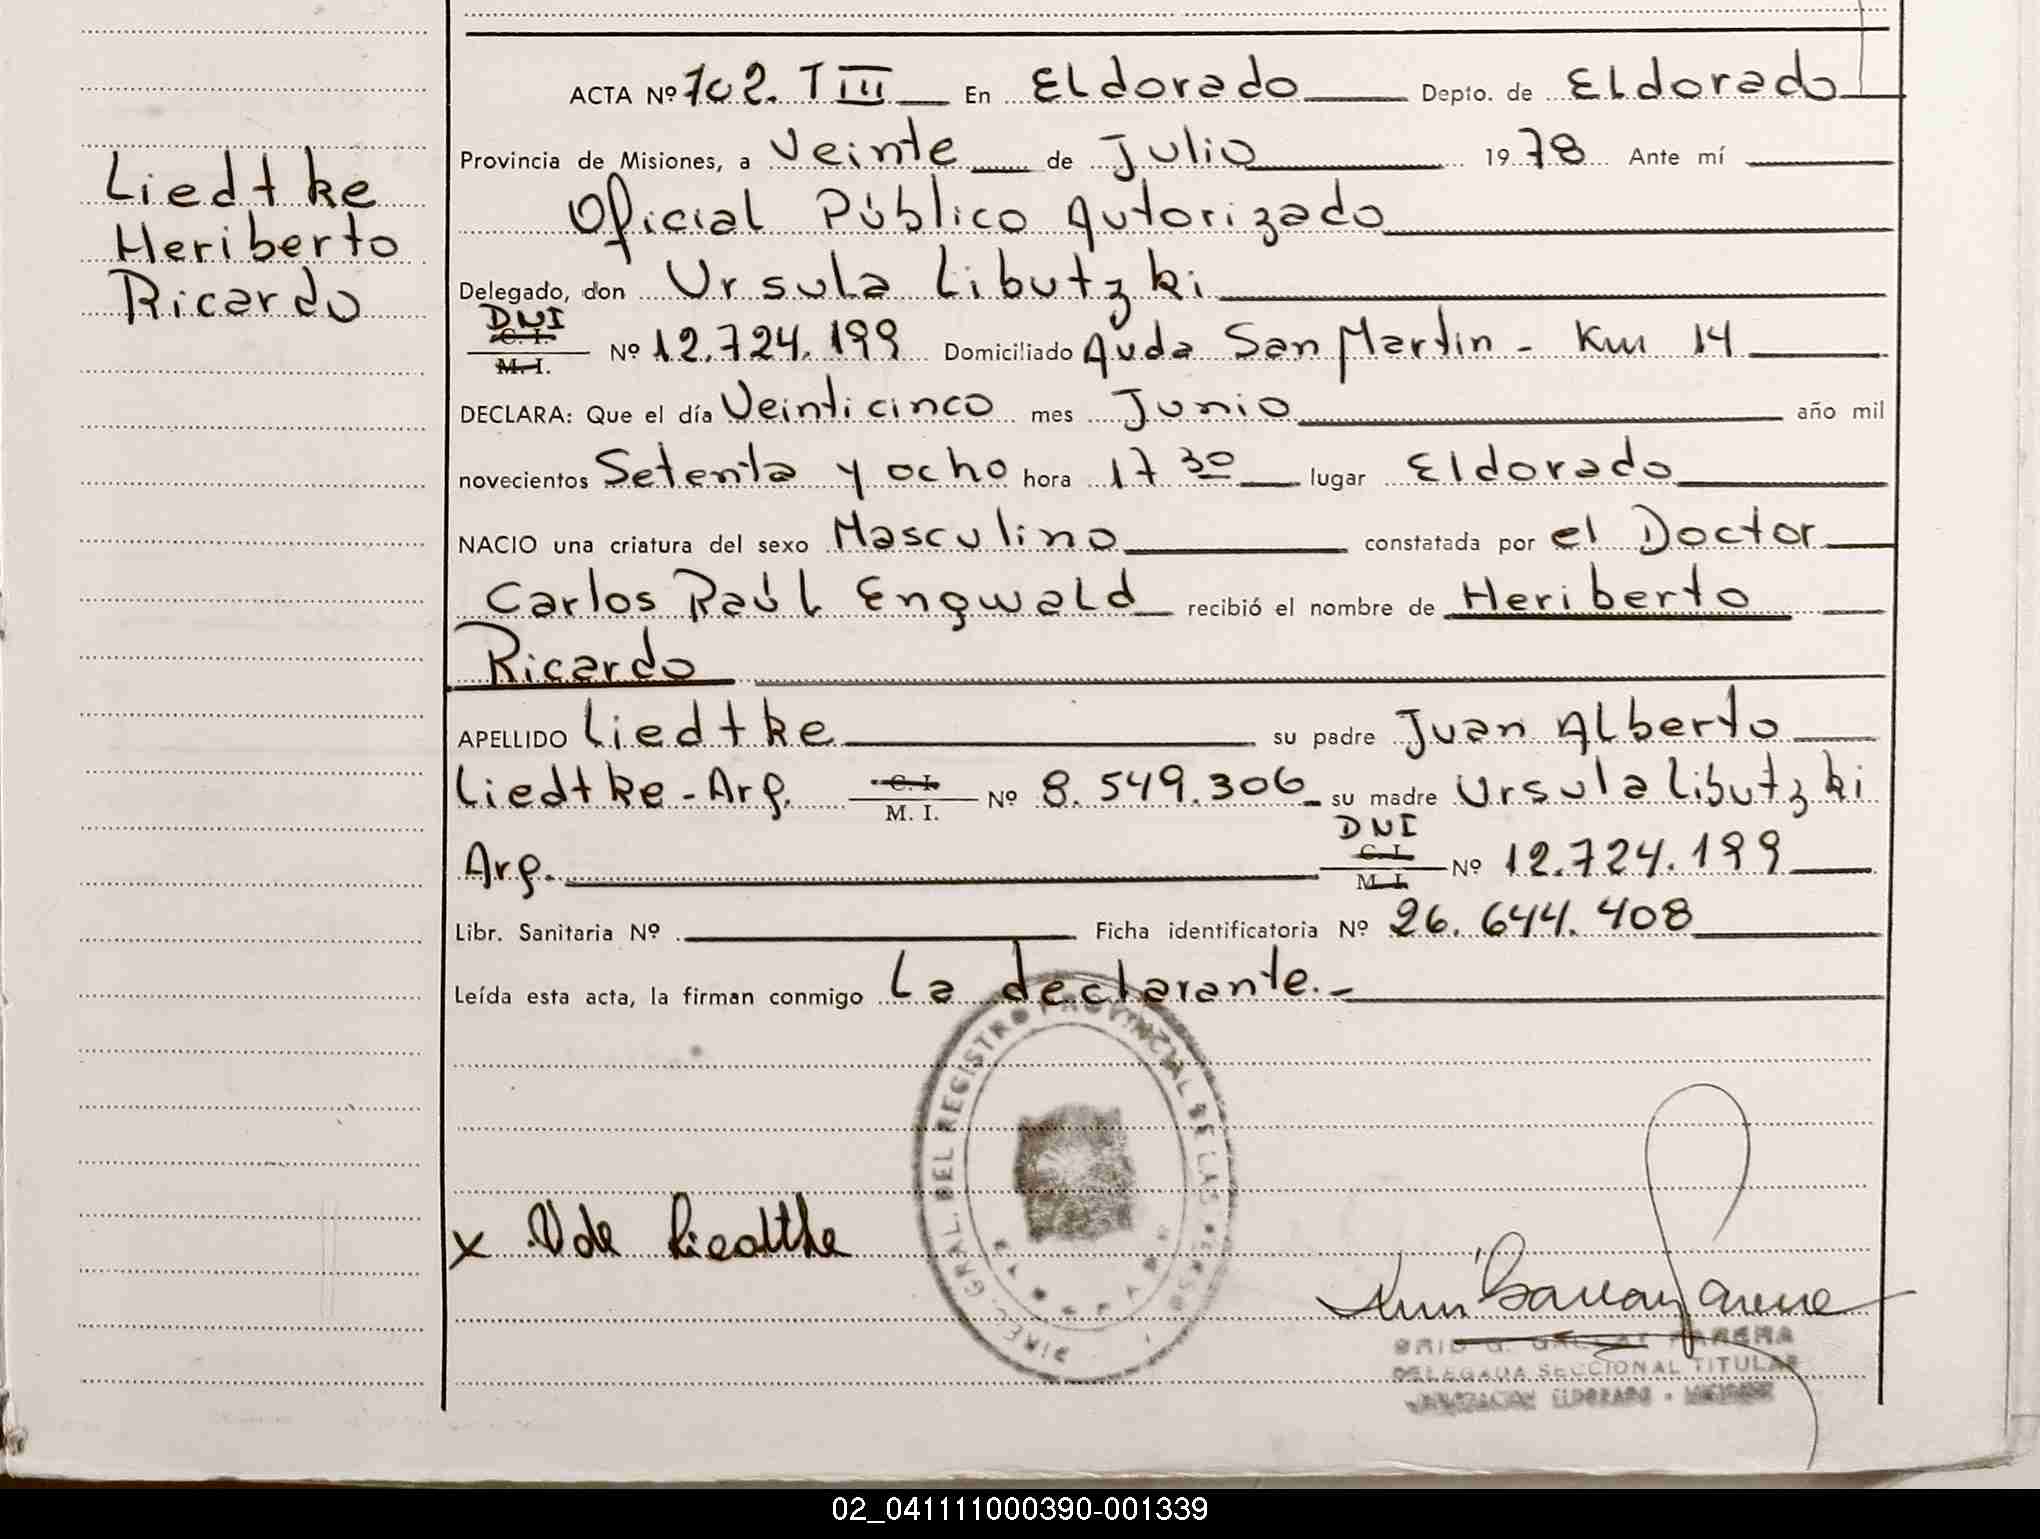 Liedtke
Heriberto
Ricardo
ACTA Nº 702. T III En Eldorado Depto. de Eldorado
Provincia de Misiones, a Veinte de Julio 1978 Ante mí
Oficial Público Autorizado
Delegado, don Ursula Libutzki
DNI
C. I.
M. I. Nº 12.724.199 Domiciliado Avda San Martin - Km 14
DECLARA: Que el día Veinticinco mes Junio año mil
novecientos Setenta y ocho hora 17 30 lugar Eldorado
NACIO una criatura del sexo Masculino constatada por el Doctor
Carlos Raúl Engwald recibió el nombre de Heriberto
Ricardo
APELLIDO Liedtke su padre Juan Alberto
Liedtke - Arg. C. I. M. I. Nº 8.549.306 su madre Ursula Libutzki
DNI
Arg. C. I. M. I. Nº 12.724.199
Libr. Sanitaria Nº Ficha identificatoria Nº 26.644.408
Leída esta acta, la firman conmigo La declarante.-
DIREC. GRAL. DEL REGISTRO PROVINCIAL DE LAS PERSONAS
x U de Liedtke
PARERA
DELEGADA SECCIONAL TITULAR
ELDORADO - MISIONES
02_041111000390-001339